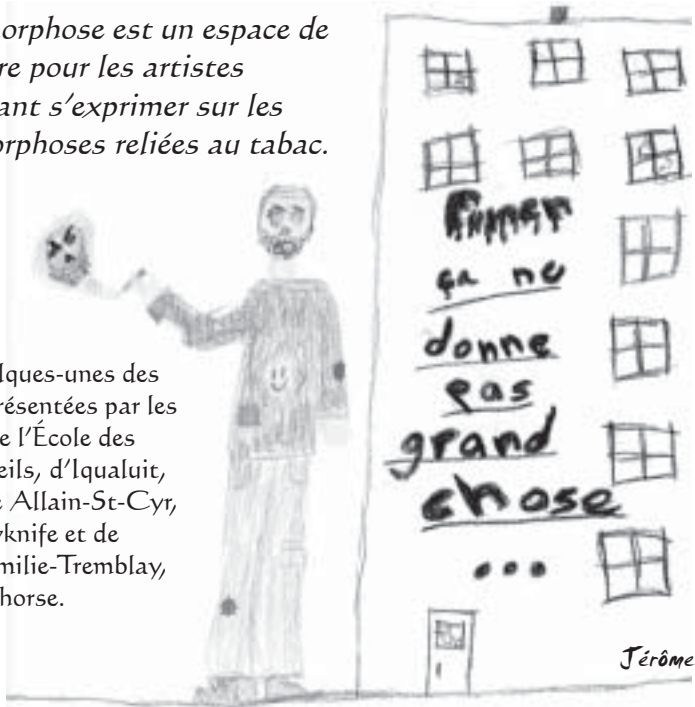 orphose est un espace de
re pour les artistes
ant s'exprimer sur les
orphoses reliées au tabac.
lques-unes des
résentées par les
e l'École des
eils, d'Iqualuit,
e Allain-St-Cyr,
knife et de
milie-Tremblay,
horse.
Fumer
ça ne
donne
pas
grand
chose
...
Jérôme